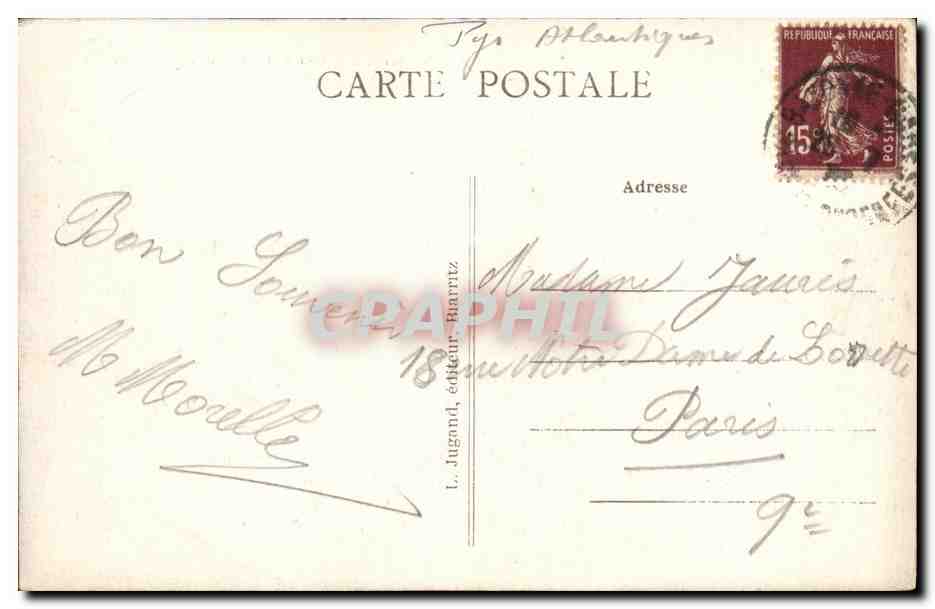 Pys Atlantiques
CARTE POSTALE
REPUBLIQUE FRANÇAISE
15c
POSTES
Adresse
Bon Souvenir
M Morelle
L. Jugand, éditeur, Biarritz
CPAPHIL
Madame Jaurès
18 rue Notre Dame de Lorette
Paris
9e